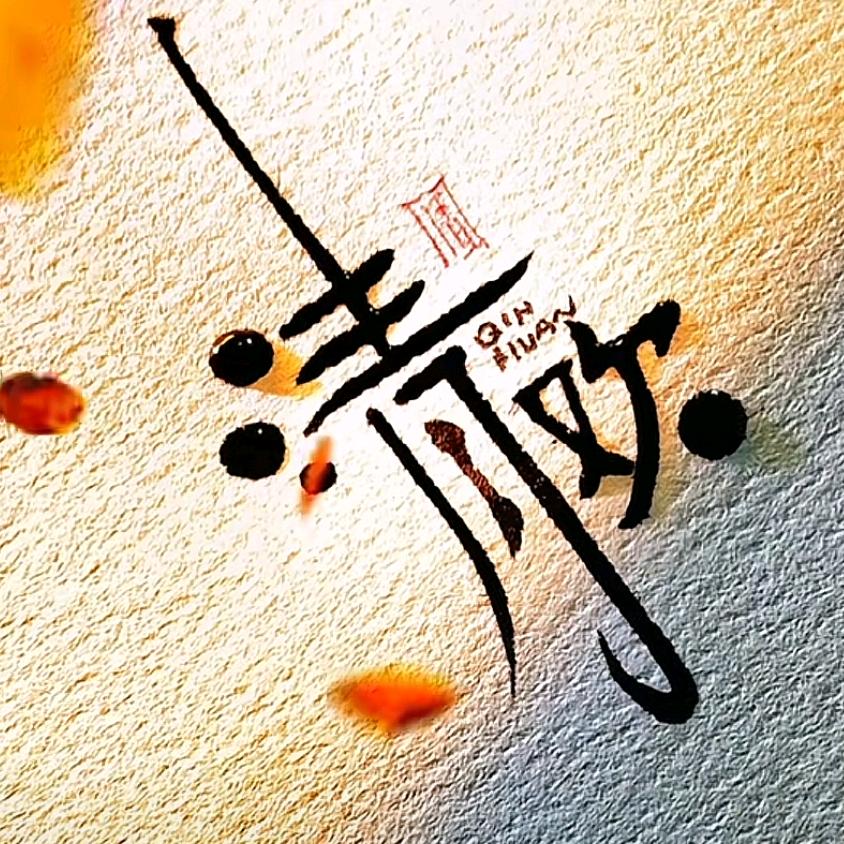 清欢
QIN
HUAN